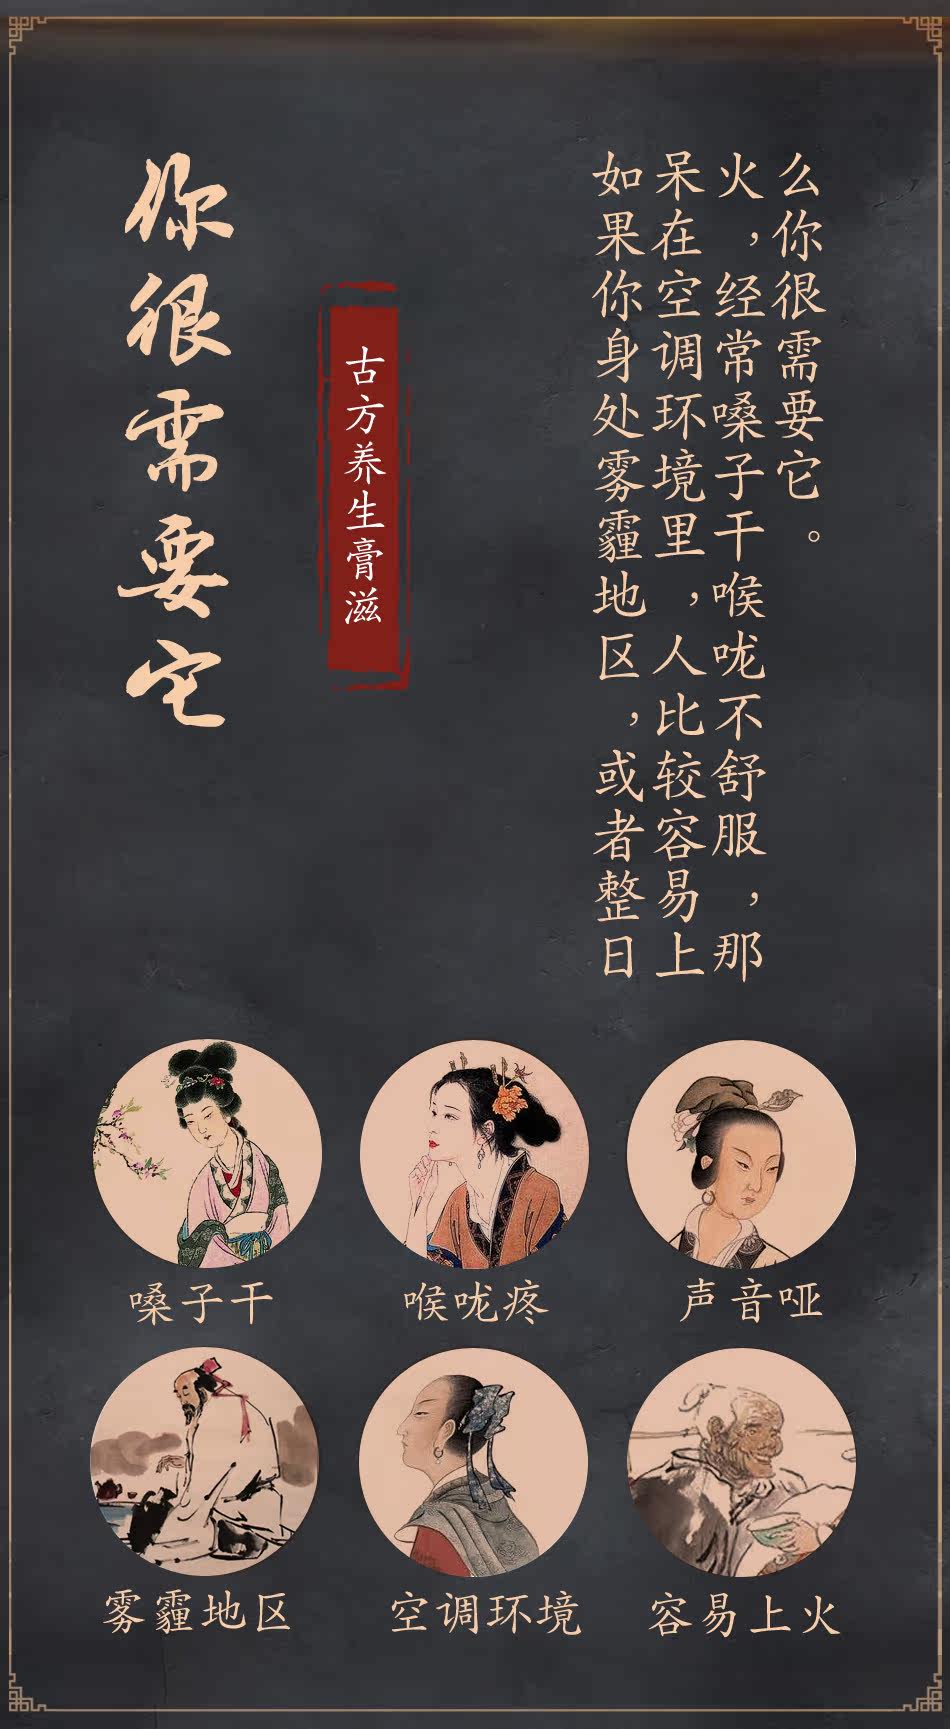 你很需要它
古方养生膏滋
如果你身处雾霾地区，或者整日
呆在空调环境里，人比较容易上
火，经常嗓子干喉咙不舒服，那
么你很需要它。
嗓子干
喉咙疼
声音哑
雾霾地区
空调环境
容易上火